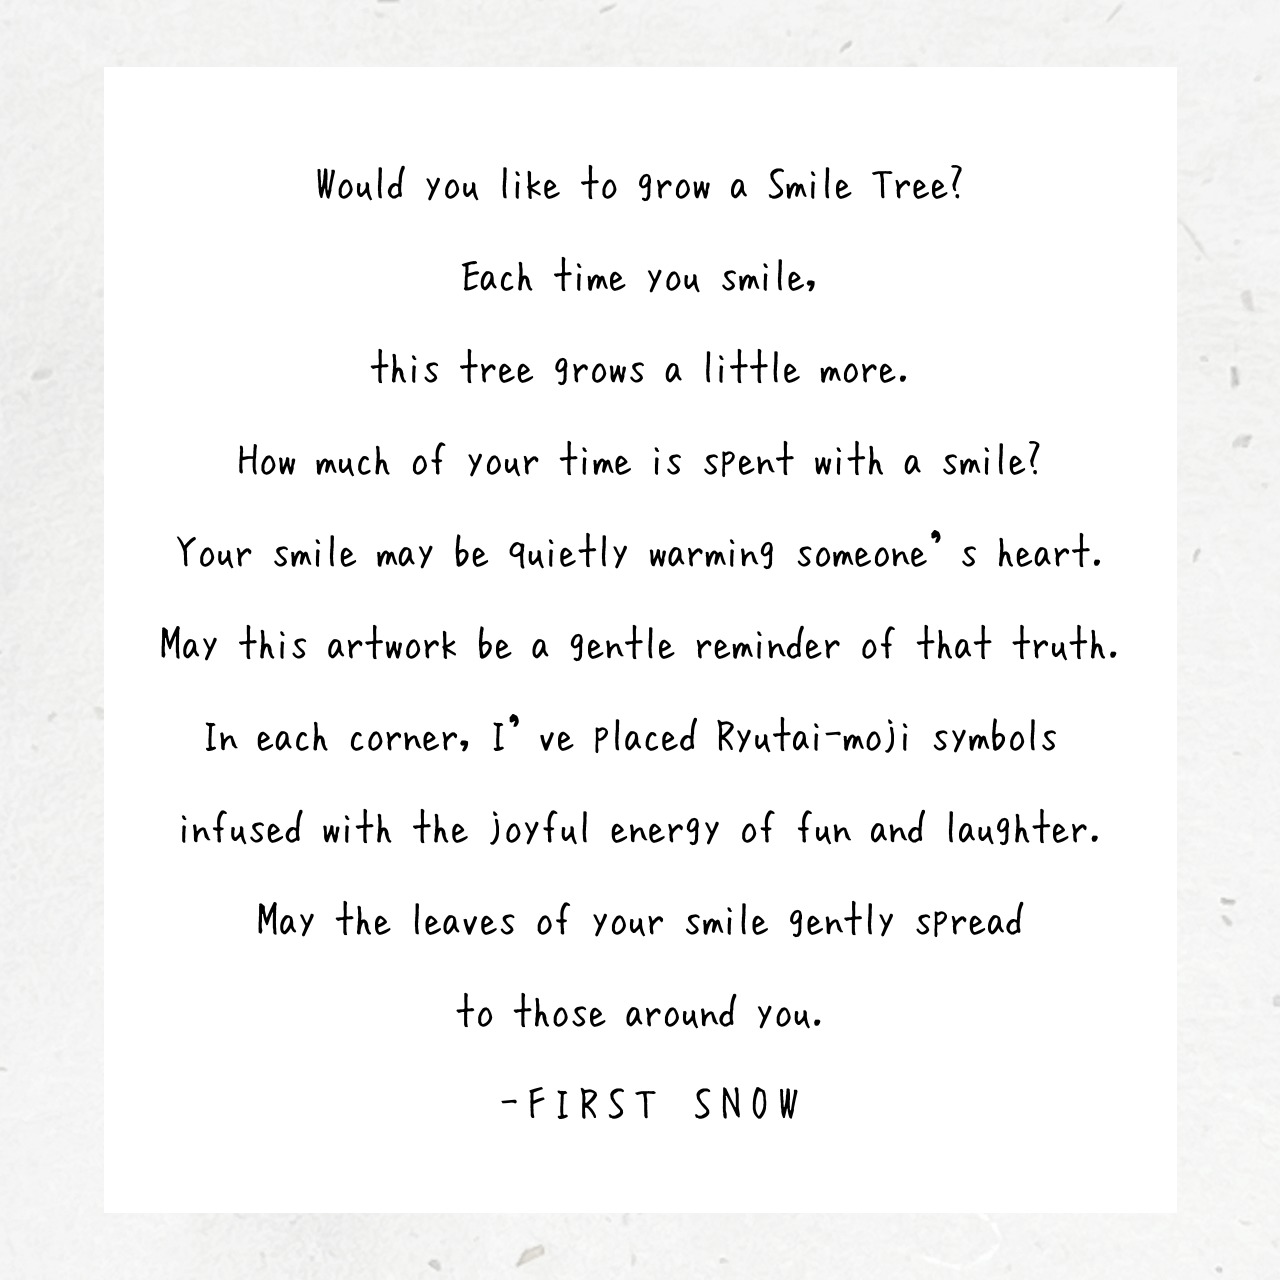 Would you like to grow a Smile Tree?
Each time you smile,
this tree grows a little more.
How much of your time is spent with a smile?
Your smile may be quietly warming someone’s heart.
May this artwork be a gentle reminder of that truth.
In each corner, I’ve placed Ryutai-moji symbols
infused with the joyful energy of fun and laughter.
May the leaves of your smile gently spread
to those around you.
-FIRST SNOW